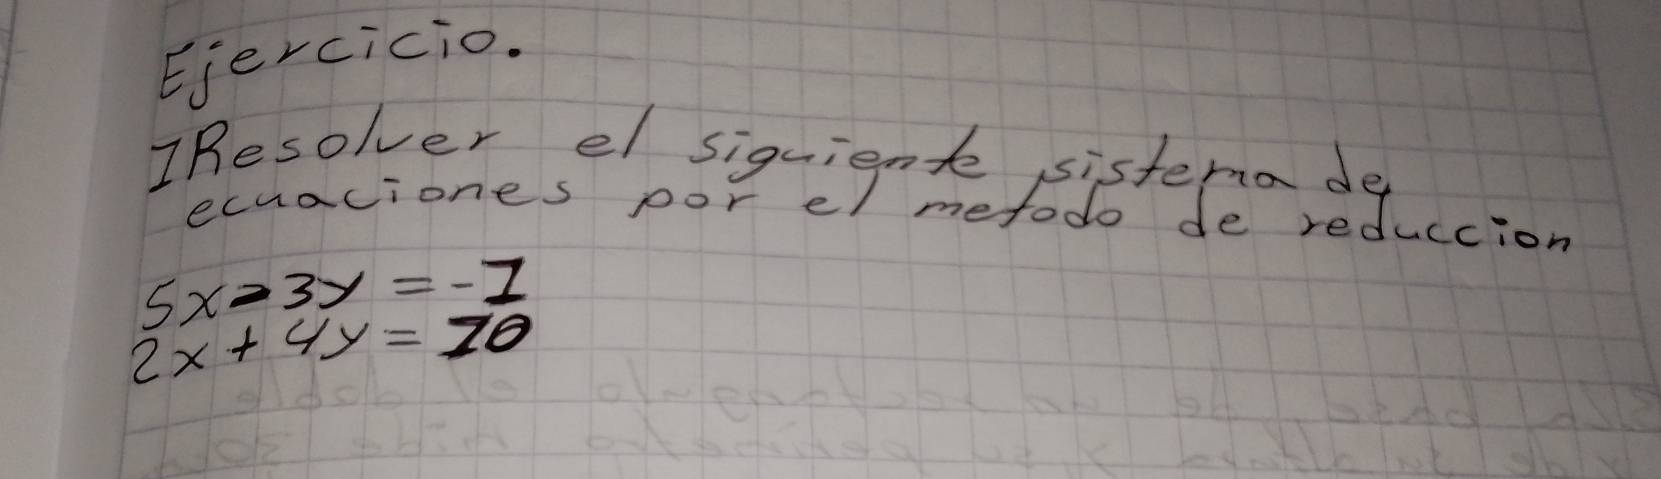 Ejercicio.
1 Resolver el siguiente sistema de
ecuaciones por el metodo de reduccion
5x-3y=-1
2x+4y=10